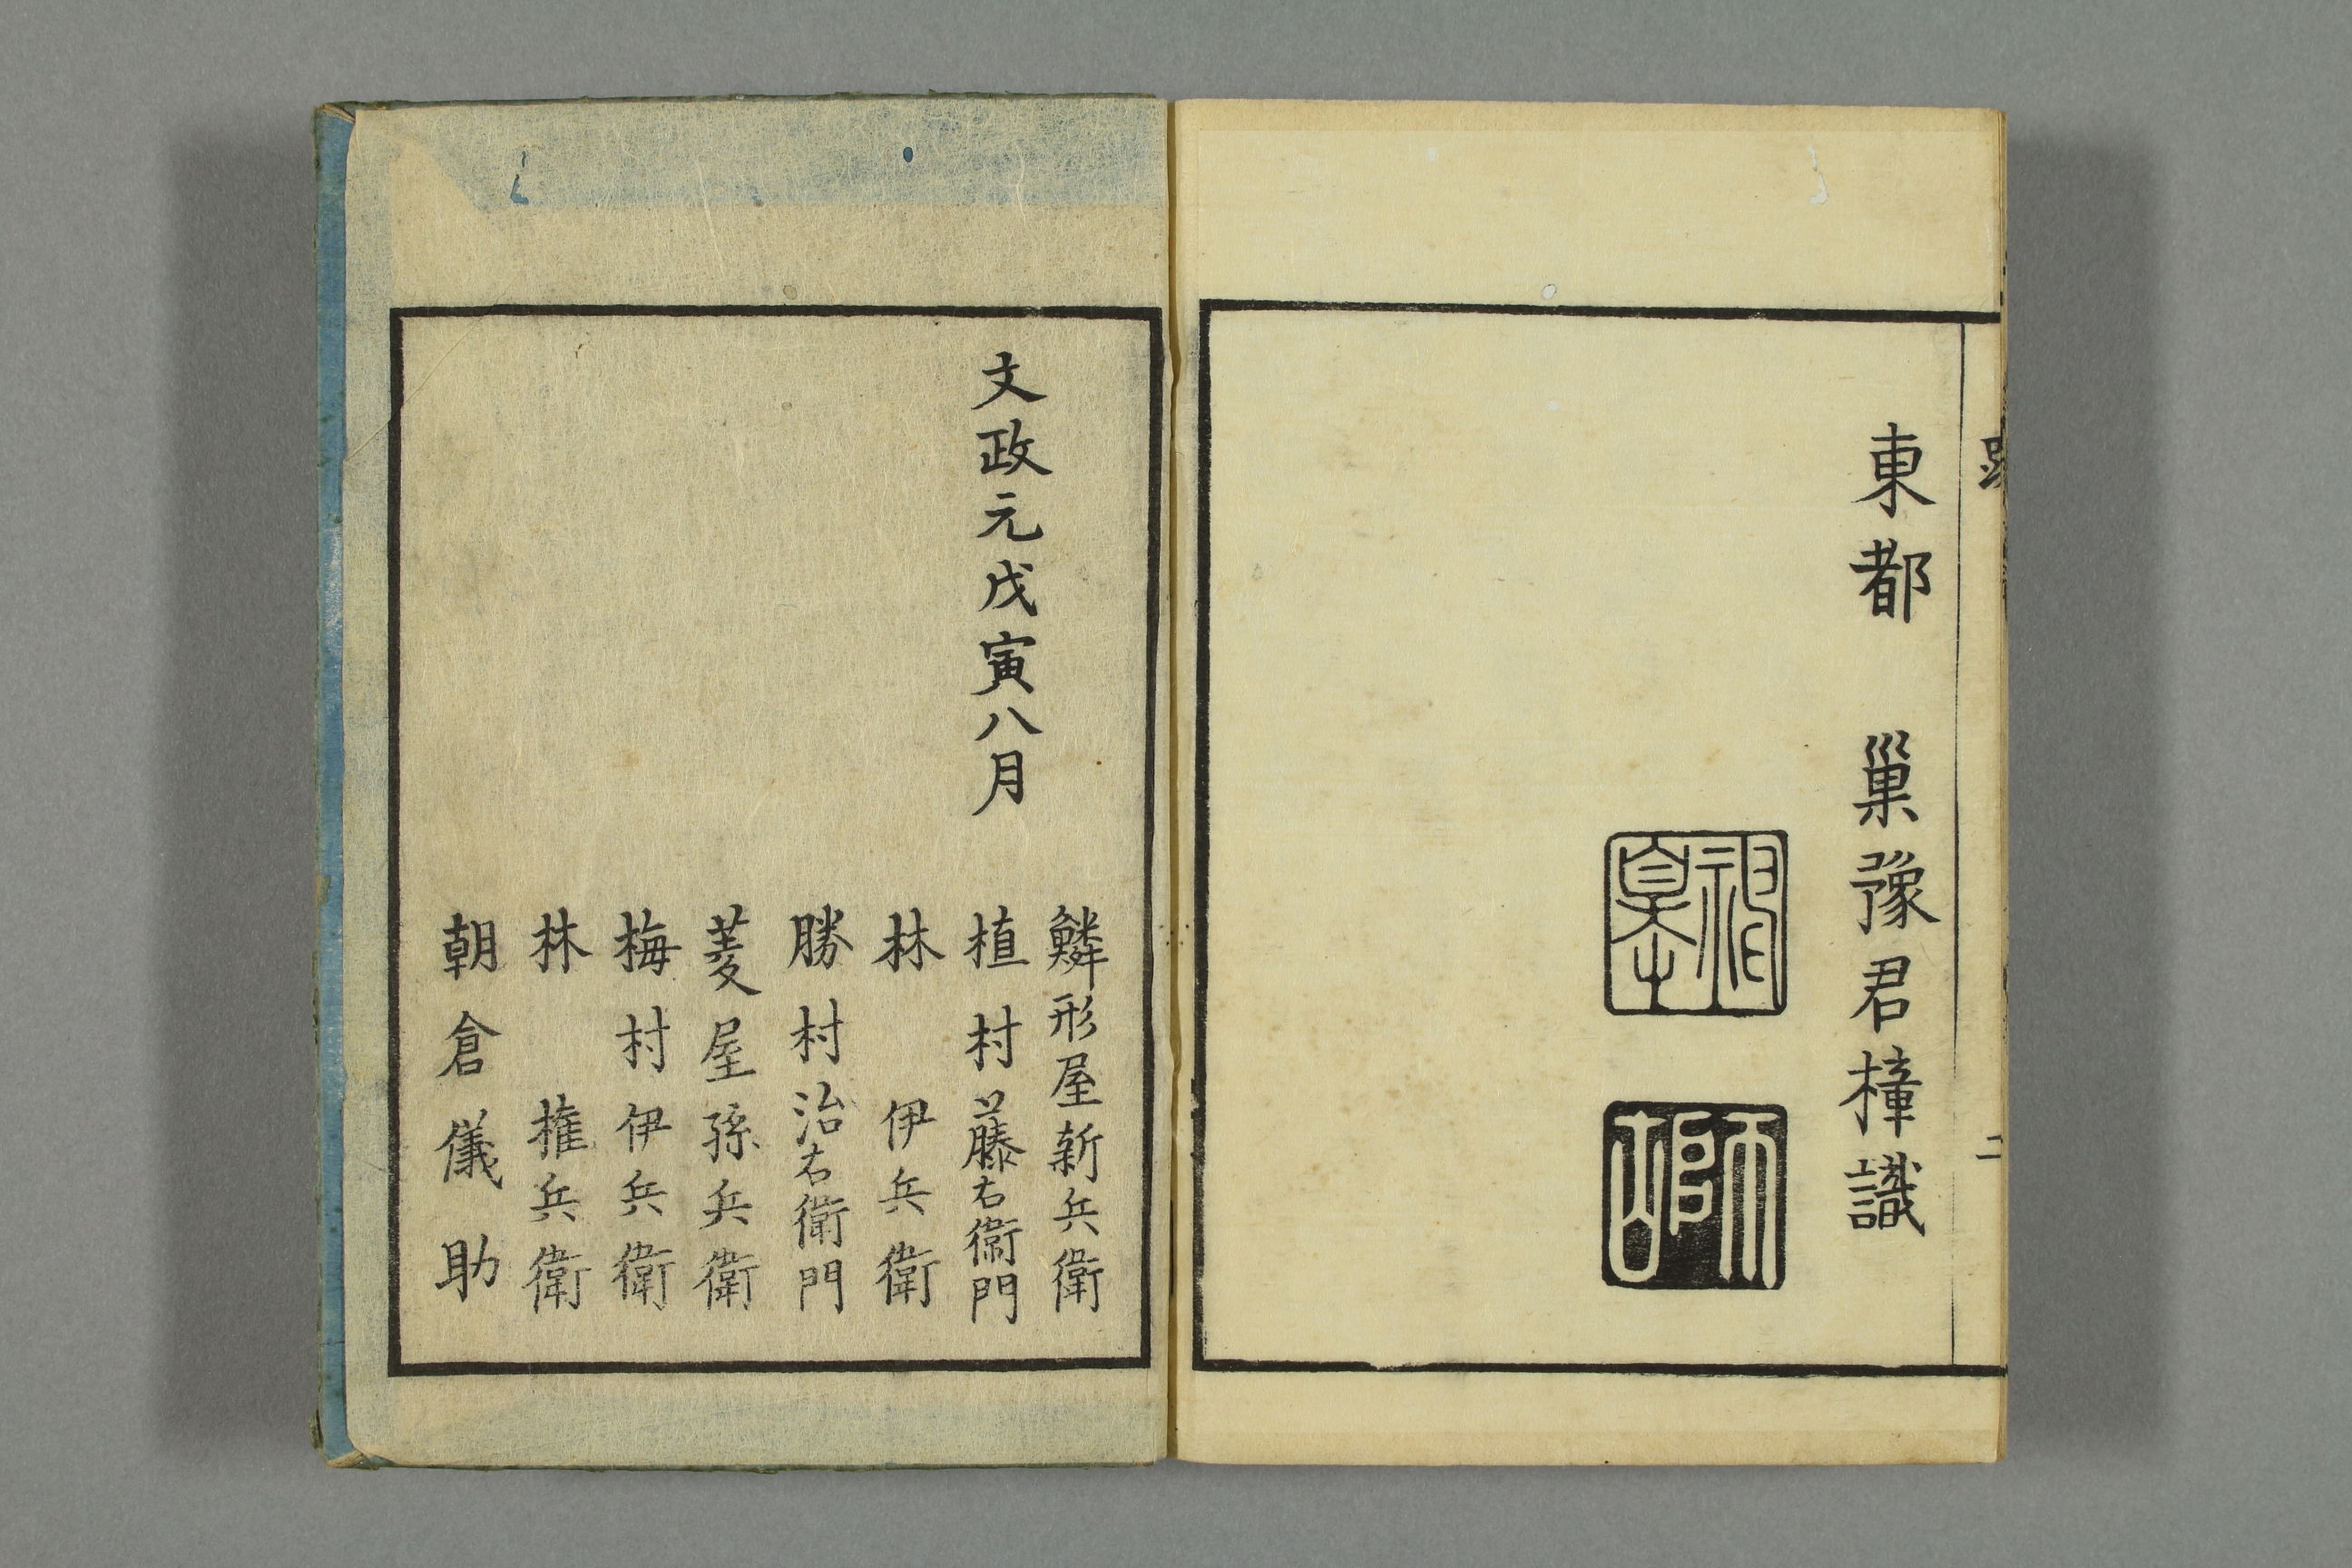 東都 巢豫君樟識
二
文政元戊寅八月
鱗形屋新兵衛
植村藤右衛門
林伊兵衛
勝村治右衛門
菱屋孫兵衛
梅村伊兵衛
林権兵衛
朝倉儀助